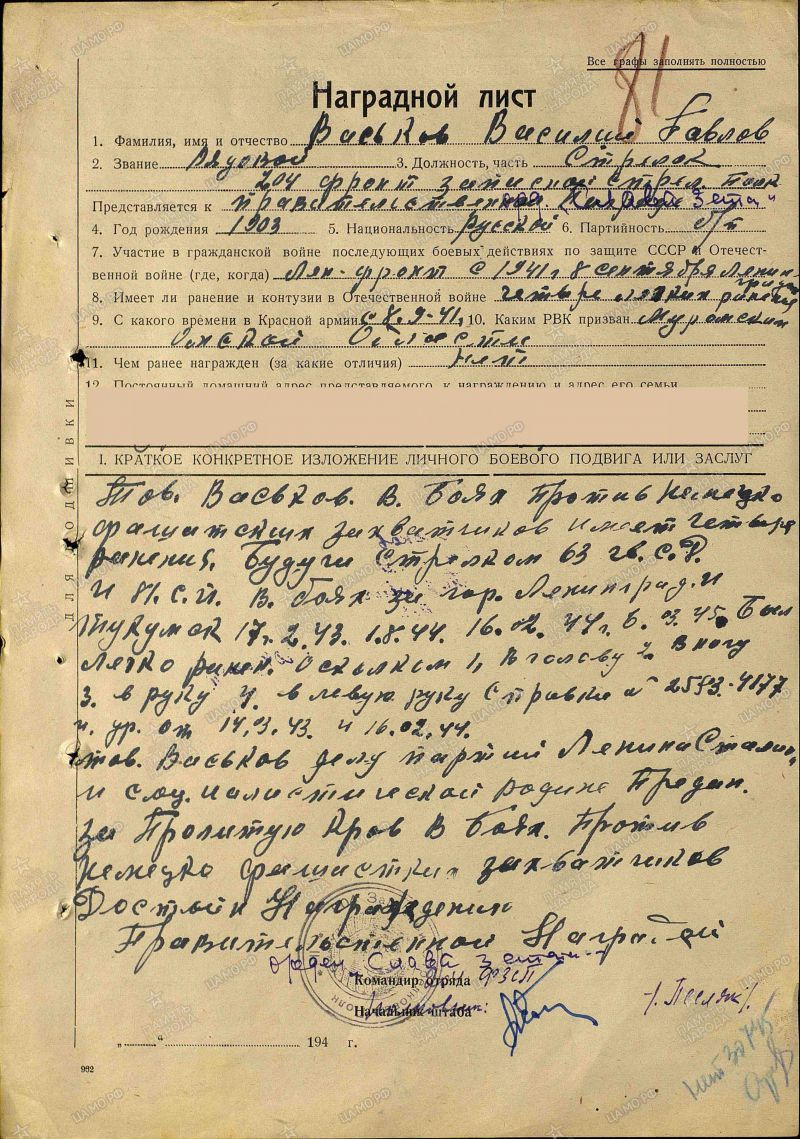 Все графы заполнять полностью
81
Наградной лист
1. Фамилия, имя и отчество Васьков Василий Павлов
2. Звание Рядовой 3. Должность, часть Стрелок
204 фронт запасной стрел. полк
Представляется к правительственной награде „Слава 3 степ"
4. Год рождения 1903 5. Национальность Русский 6. Партийность б/п
7. Участие в гражданской войне последующих боевых действиях по защите СССР и Отечест-
венной войне (где, когда) Лен-фронт с 1941г 8 сентября Ленин
град
8. Имеет ли ранение и контузии в Отечественной войне четыре легких ранения
9. С какого времени в Красной армии с 8.9-41г. 10. Каким РВК призван Муромским
Омской Области
11. Чем ранее награжден (за какие отличия) нет
12. Постоянный домашний адрес представляемого к награждению и адрес его семьи
I. КРАТКОЕ КОНКРЕТНОЕ ИЗЛОЖЕНИЕ ЛИЧНОГО БОЕВОГО ПОДВИГА ИЛИ ЗАСЛУГ
Тов. Васьков. В. боях против немецко
фашатских захватчиков имеет четыре
ранения. Будучи Стрелком 63 гв. С.Д.
и 81. С.П. В. боях за гор. Ленинград. и
Тукумск 17. 2. 43. 1.8.44. 16. 02. 44г. 6. 03. 45. Был
легко ранен. Осколком 1, в голову 2. в ногу
3. в руку 4. в левую руку Справка № 2593-4177
от 14.03.43. и 16.02.44.
тов. Васьков делу партии Ленина Сталин
и соц.иалистической родине Предан.
за Пролитую Кров в боях. Против
немецко фашастких захватчиков
Достыйн Награждения
Правительственной Наградой
орден „Слава 3 степ"
Командир отряда ФЗСП
Начальник штаба полковник: /. Песляк/.
„ " 194 г.
992
ДЛЯ ПОДШИВКИ
ПАМЯТЬ НАРОДА
ЦАМО.РФ